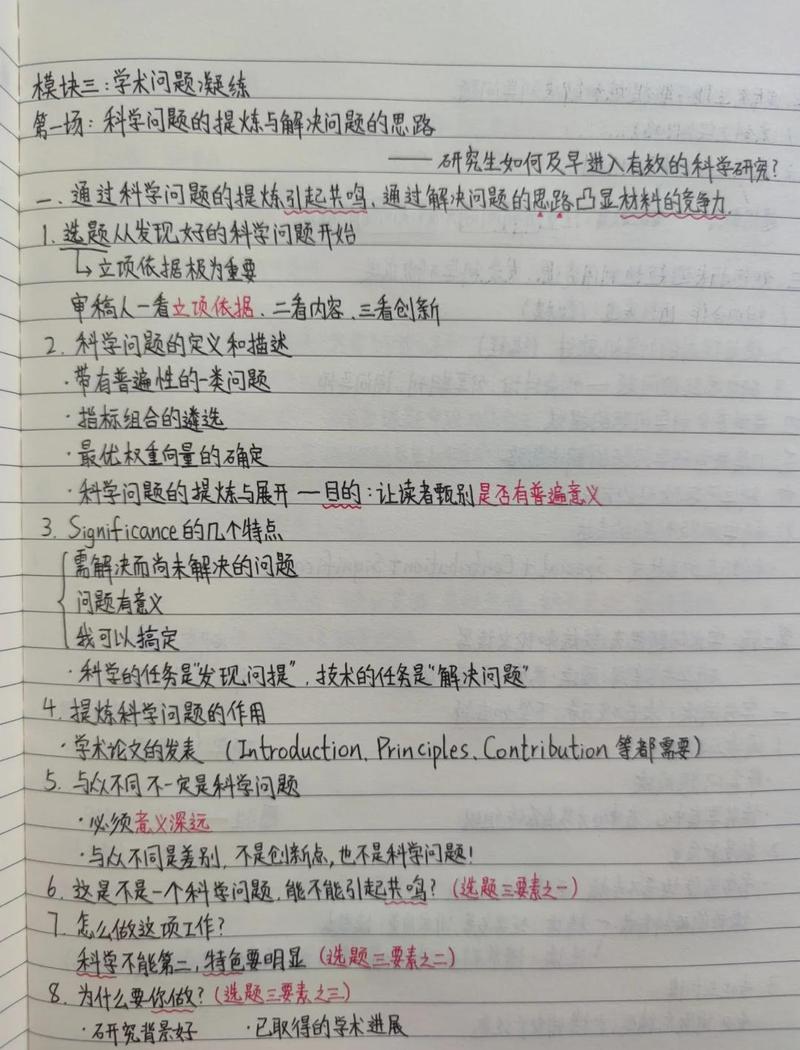 模块三：学术问题凝练
第一场：科学问题的提炼与解决问题的思路
——研究生如何及早进入有效的科学研究？
一、通过科学问题的提炼引起共鸣，通过解决问题的思路凸显材料的竞争力.
1. 选题从发现好的科学问题开始
↳立项依据极为重要
审稿人一看立项依据、二看内容、三看创新
2. 科学问题的定义和描述
·带有普遍性的一类问题
·指标组合的遴选
·最优权重向量的确定
·科学问题的提炼与展开 —目的：让读者甄别是否有普遍意义
3. Significance的几个特点
需解决而尚未解决的问题
问题有意义
我可以搞定
·科学的任务是"发现问提"，技术的任务是"解决问题"
4. 提炼科学问题的作用
·学术论文的发表 （Introduction、Principles、Contribution 等都需要）
5. 与众不同不一定是科学问题
·必须意义深远
·与众不同是差别，不是创新点，也不是科学问题！
6. 这是不是一个科学问题，能不能引起共鸣？（选题三要素之一）
7. 怎么做这项工作？
科学不能第二，特色要明显（选题三要素之二）
8. 为什么要你做？（选题三要素之三）
·研究背景好 ·已取得的学术进展